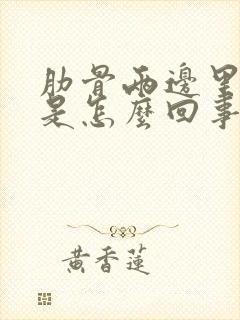 肋骨兩邊里
是怎麼回事
黃香蓮